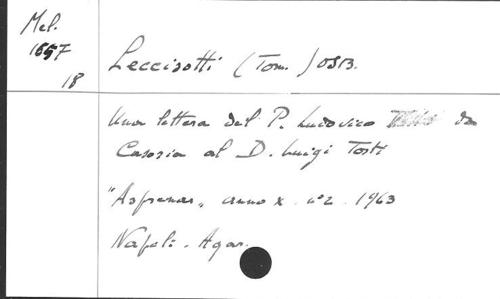 Mel.
1657
18
Leccisotti (Tom.) OSB.
Una lettera del P. Ludovico da
Casoria al D. Luigi Tosti
"Asprenas" anno X. n°2. 1963
Napoli. Agar.